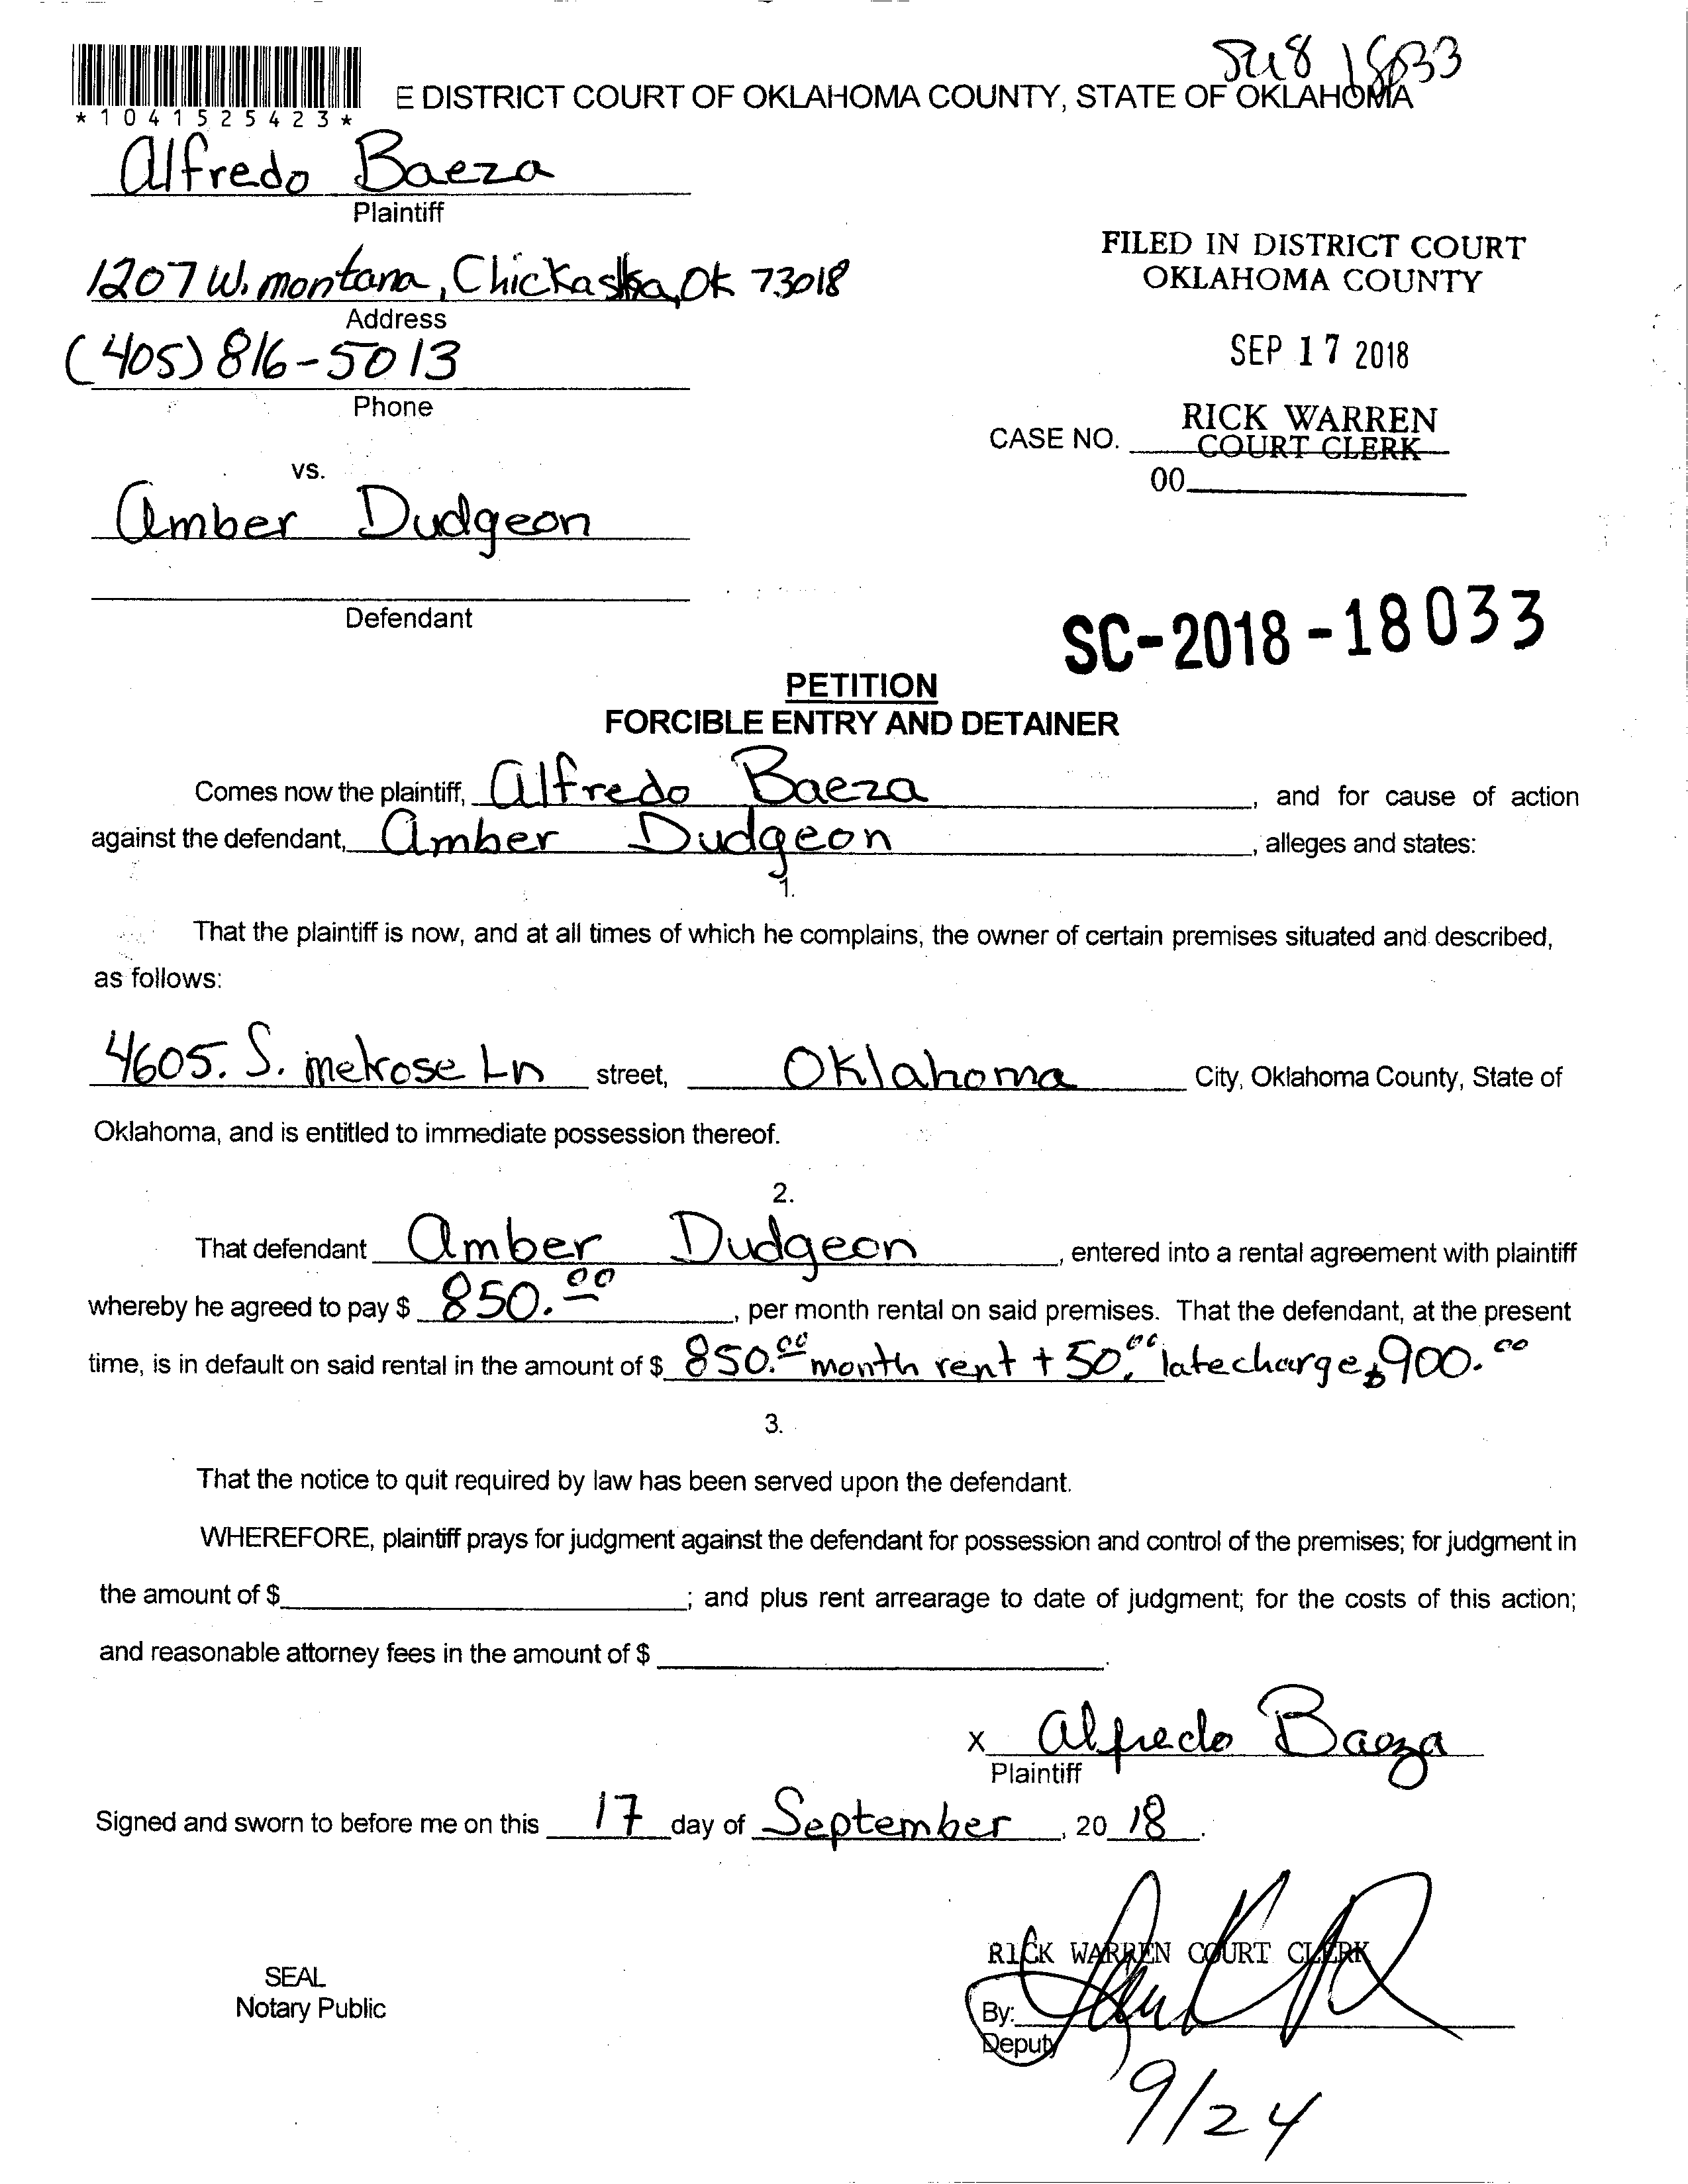 18033
E DISTRICT COURT OF OKLAHOMA COUNTY, STATE OF OKLAHOMA
*1041525423*
Alfredo Baeza
Plaintiff
1207 W. montana, Chickasha, OK 73018
Address
(405) 816-5013
Phone
FILED IN DISTRICT COURT
OKLAHOMA COUNTY
SEP 17 2018
RICK WARREN
COURT CLERK
CASE NO.
00
vs.
Amber Dudgeon
Defendant
SC-2018-18033
PETITION
FORCIBLE ENTRY AND DETAINER
Comes now the plaintiff, Alfredo Baeza, and for cause of action
against the defendant, Amber Dudgeon, alleges and states:
1.
That the plaintiff is now, and at all times of which he complains, the owner of certain premises situated and described,
as follows:
4605. S. melrose Ln street, Oklahoma City, Oklahoma County, State of
Oklahoma, and is entitled to immediate possession thereof.
2.
That defendant Amber Dudgeon, entered into a rental agreement with plaintiff
whereby he agreed to pay $ 850.00, per month rental on said premises. That the defendant, at the present
time, is in default on said rental in the amount of $ 850.00 month rent + 50.00 latecharge $900.00
3.
That the notice to quit required by law has been served upon the defendant.
WHEREFORE, plaintiff prays for judgment against the defendant for possession and control of the premises; for judgment in
the amount of $; and plus rent arrearage to date of judgment; for the costs of this action;
and reasonable attorney fees in the amount of $.
X Alfredo Baeza
Plaintiff
Signed and sworn to before me on this 17 day of September, 20 18.
RICK WARREN COURT CLERK
SEAL
Notary Public
By:
Deputy
9/24